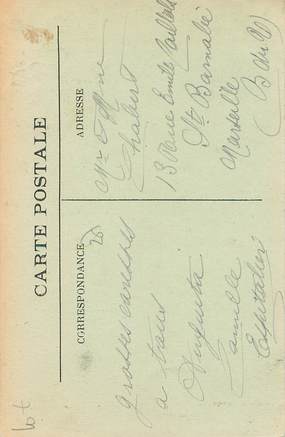 CARTE POSTALE
CORRESPONDANCE
26
grosses caresses
a tous
Augusta
Camille
Espitalier
ADRESSE
Mr & Mme
Chabert
13 Rue Emile
St Barnabé
Marseille
(B du R)
lot